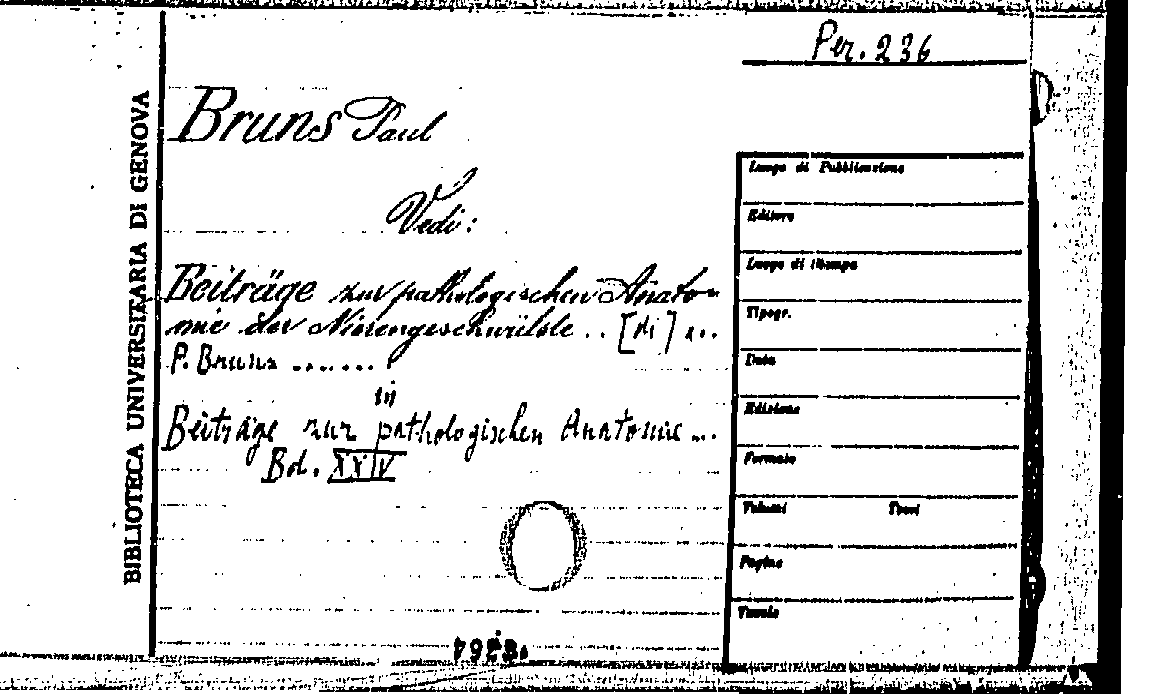 Per. 236
BIBLIOTECA UNIVERSITARIA DI GENOVA
Bruns Paul
Vedi:
Beiträge zur pathologischen Anato-
mie der Nierengeschwülste .. [di] ...
P. Bruns .......
in
Beiträge zur pathologischen Anatomie ...
Bd. XXIV
Luogo di Pubblicazione
Editore
Luogo di stampa
Tipogr.
Data
Edizione
Formato
Volumi Tomi
Pagine
Tavole